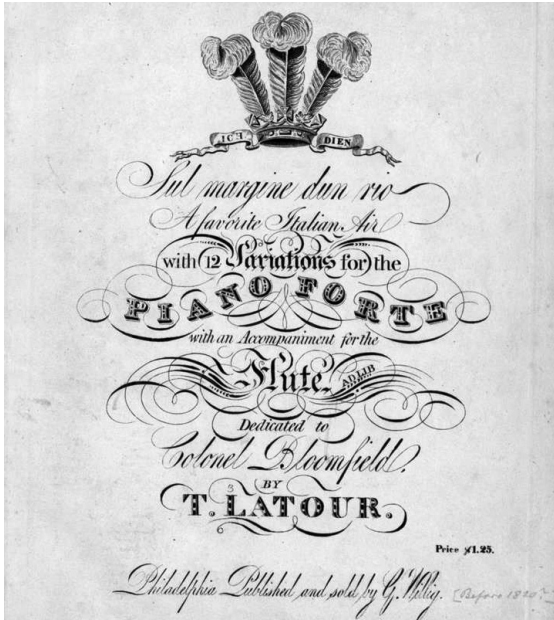 ICH DIEN
Sul margine dun rio
A favorite Italian Air
with 12 Variations for the
PIANO FORTE
with an Accompaniment for the
Flute AD LIB
Dedicated to
Colonel Bloomfield.
BY
T. LATOUR.
3
Price $1.25.
Philadelphia Published and sold by G. Willig. [Before 1820?]